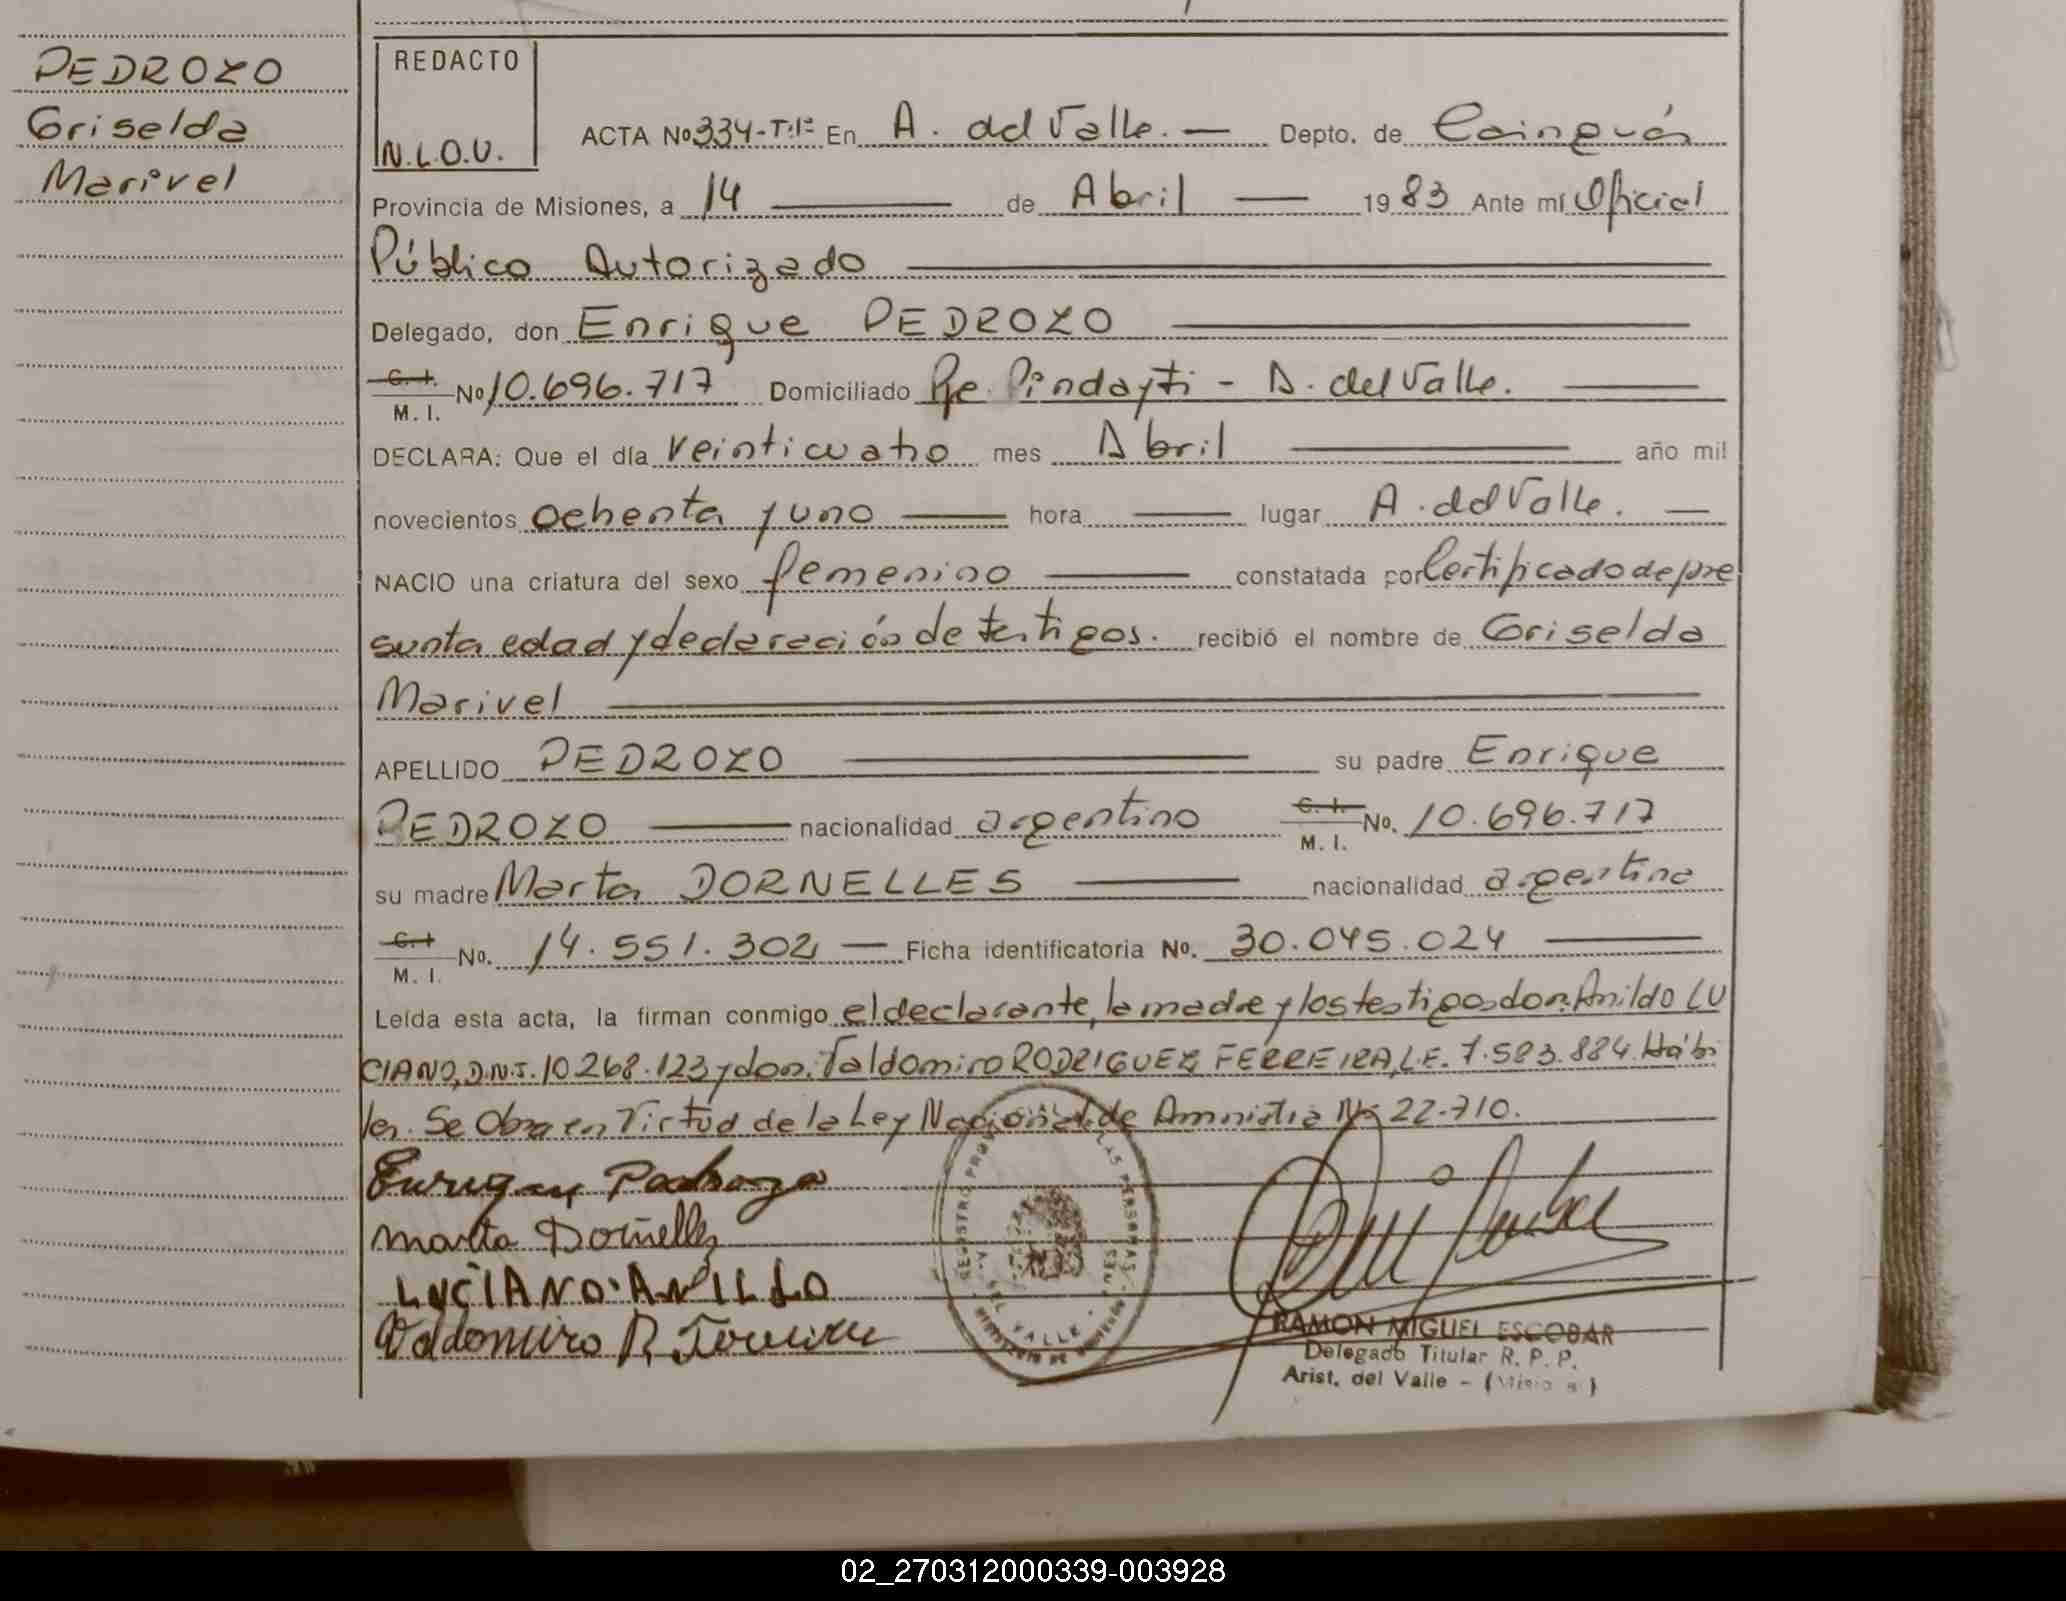 PEDROZO
Griselda
Marivel
REDACTO
N.L.O.U.
ACTA Nº 334-T:1º En A. del Valle. — Depto. de Cainguás
Provincia de Misiones, a 14 — de Abril — 1983 Ante mí Oficial
Público Autorizado —
Delegado, don Enrique PEDROZO —
C. I.
M. I. Nº 10.696.717 Domiciliado Pje. Pindayti - A. del Valle. —
DECLARA: Que el día veinticuatro mes Abril — año mil
novecientos ochenta y uno — hora — lugar A. del Valle. —
NACIO una criatura del sexo femenino — constatada por Certificado de pre
sunta edad y declaración de testigos. recibió el nombre de Griselda
Marivel —
APELLIDO PEDROZO — su padre Enrique
PEDROZO — nacionalidad argentino C. I.
M. I. No. 10.696.717
su madre Marta DORNELLES — nacionalidad argentina
C. I
M. I. No. 14.551.302 — Ficha identificatoria No. 30.045.024 —
Leída esta acta, la firman conmigo el declarante, la madre y los testigos don. Anildo LU
CIANO, D.N.I. 10.268.123 y don. Valdomiro RODRIGUEZ FERREIRA, L.E. 7.583.884. Hábi
les. Se Obra en Virtud de la Ley Nacional de Amnistia Nº 22.710.
Marta Dornelles
LUCIANO ANILDO
Valdomiro R. Ferreira
REGISTRO PROV LAS PERSONAS
A. DEL VALLE
RAMON MIGUEL ESCOBAR
Delegado Titular R. P. P.
Arist. del Valle - (Misio s)
02_270312000339-003928